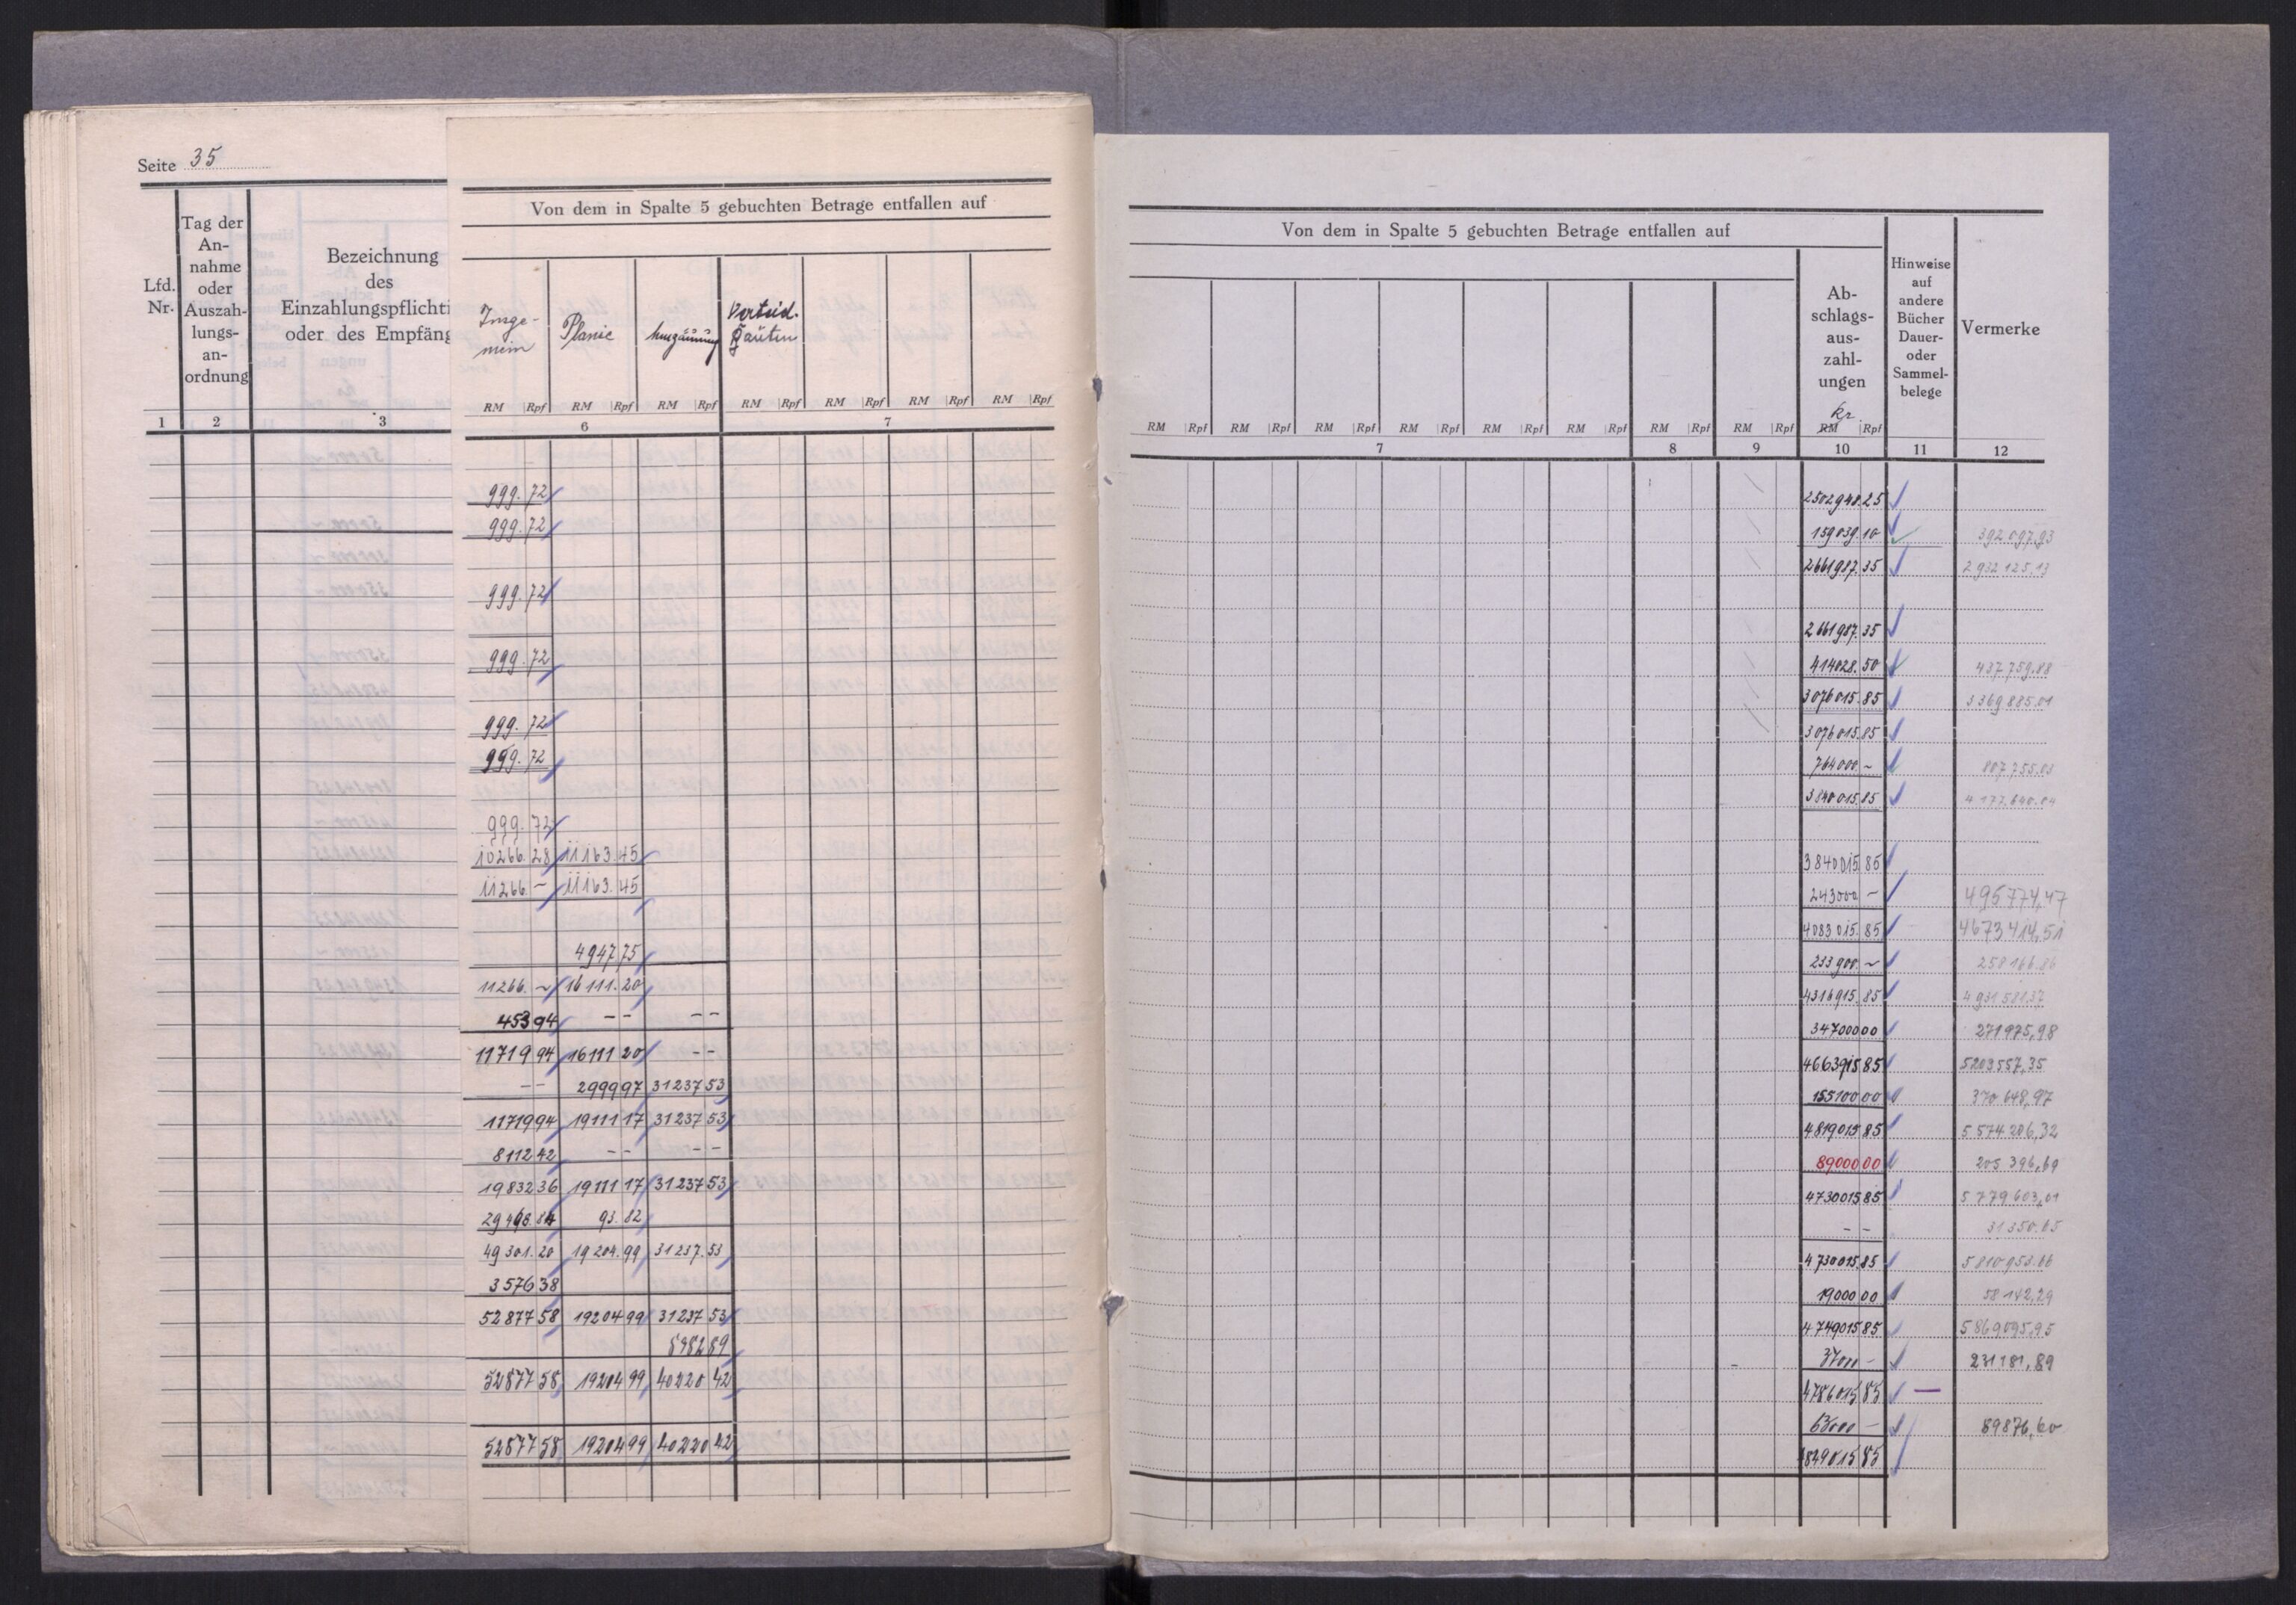 Seite 35
Lfd. Nr.
Tag der An-nahme oder Auszah-lungs-an-ordnung
Bezeichnung
des
Einzahlungspflichti
oder des Empfäng
1 2 3
Von dem in Spalte 5 gebuchten Betrage entfallen auf
Insge-mein Planie Umzäunung Verteid. Bauten
RM Rpf RM Rpf RM Rpf RM Rpf RM Rpf RM Rpf RM Rpf
6 7
999.72
999.72
999.72
999.72
999.72
999.72
999.72
10266.28 11163.45
11266.~ 11163.45
4947.75
11266.~ 16111.20
453 94 -- --
11719 94 16111 20 --
-- 2999 97 31237 53
11719 94 19111 17 31237 53
8112 42 -- --
19832 36 19111 17 31237 53
93.82
49301.20 19204.99 31237.53
3576 38
52877 58 19204 99 31237 53
52877 58 19204 99 40220 42
52877 58 19204 99 40220 42
Von dem in Spalte 5 gebuchten Betrage entfallen auf
Ab-schlags-aus-zahl-ungen
Hinweise auf andere Bücher Dauer- oder Sammel-belege
Vermerke
kr.
RM Rpf RM Rpf RM Rpf RM Rpf RM Rpf RM Rpf RM Rpf RM Rpf RM Rpf
7 8 9 10 11 12
2502948.25
159039.10 392097,93
2661987.35 2932125,13
2661987.35
414028.50 437759.88
3076015.85 3369885.01
3076015.85
764000.~ 807755.03
3840015.85 4177640.04
3840015.85
243000 ~ 495774,47
4083015.85 4673414,51
233900.~ 258166.86
4316915.85 4931581.37
347000 00 271975,98
4663915 85 5203557,35
155100 00 370648,97
4819015 85 5574206,32
89000 00 205396,69
4730015 85 5779603,01
-- 31350.65
4730015.85 5810953.66
19000 00 58142,29
4749015 85 5869095,95
37000 - 231181,89
4786015 85 —
63000 - 89876,60
4849015 85